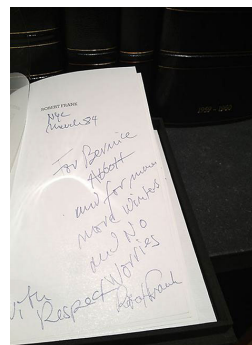 ROBERT FRANK
NYC
March 89
For Bernice
Abbott
and for many
more winters
and No
Worries
with
Respect
Robert Frank